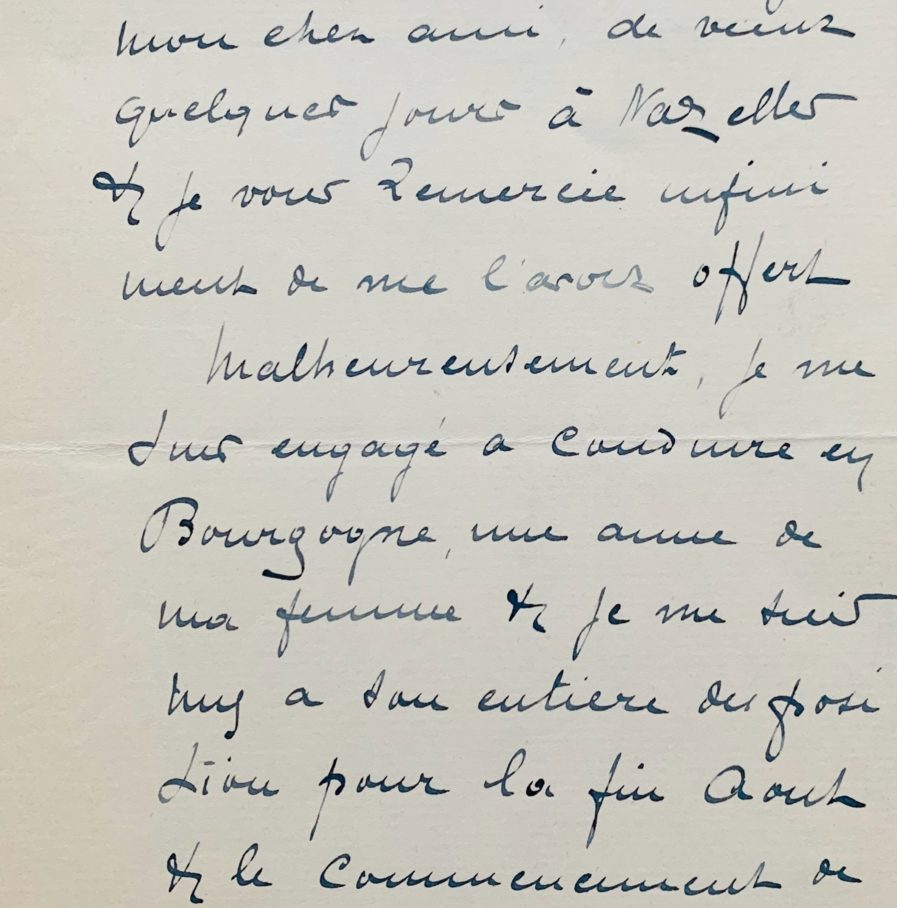 mon cher ami, de venir
quelques jours à Nazelles
& je vous remercie infini
ment de me l'avoir offert
Malheureusement, je me
suis engagé a conduire en
Bourgogne, une amie de
ma femme & je me suis
mis a son entière disposi
tion pour la fin Aout
& le commencement de